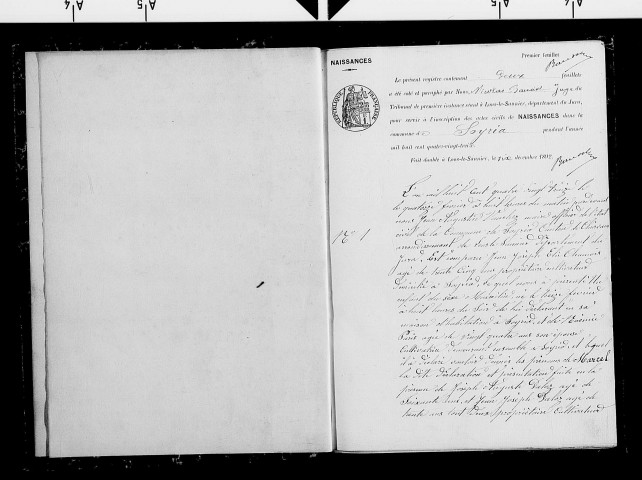 NAISSANCES
Premier feuillet
Le présent registre contenant deux feuillets
a été coté et paraphé par Nous, Nicolas Juge du
Tribunal de première instance séant à Lons-le-Saunier, département du Jura,
pour servir à l'inscription des actes civils de NAISSANCES dans la
commune de Soyria pendant l'année
mil huit cent quatre-vingt-treize
Fait double à Lons-le-Saunier, le décembre 1892
RÉPUBLIQUE FRANÇAISE
N° 1
L'an mil huit cent quatre vingt treize le
quatorze février à huit heures du matin par devant
nous Jean Auguste maire officier de l'état
civil de la Commune de Soyria Canton de
arrondissement de Lons le Saunier département du
Jura, Est comparu Jean Joseph Eli
agé de trente cinq ans propriétaire cultivateur
domicilié à Soyria, lequel nous a présenté Un
enfant du sexe Masculin né le février
à huit heures du Soir de lui déclarant en sa
maison d'habitation à Soyria, et de
agée de vingt quatre ans son épouse
Cultivatrice demeurant ensemble à Soyria, et auquel
il a déclaré vouloir donner les prénoms de Marcel
la dite déclaration et présentation faite en la
présence de Joseph Auguste agé de
Soixante ans, et Jean Joseph agé de
trente ans tout deux propriétaire Cultivateurs